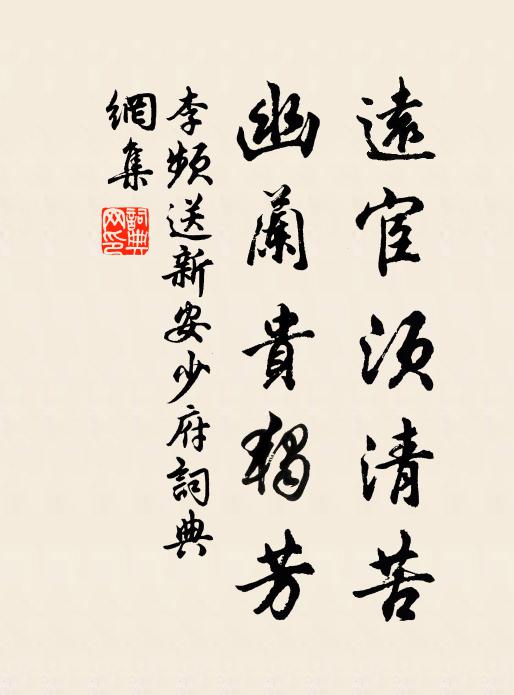 遠宦須清苦
幽蘭貴獨芳
李頻送新安少府詞典
網集
詞典網印